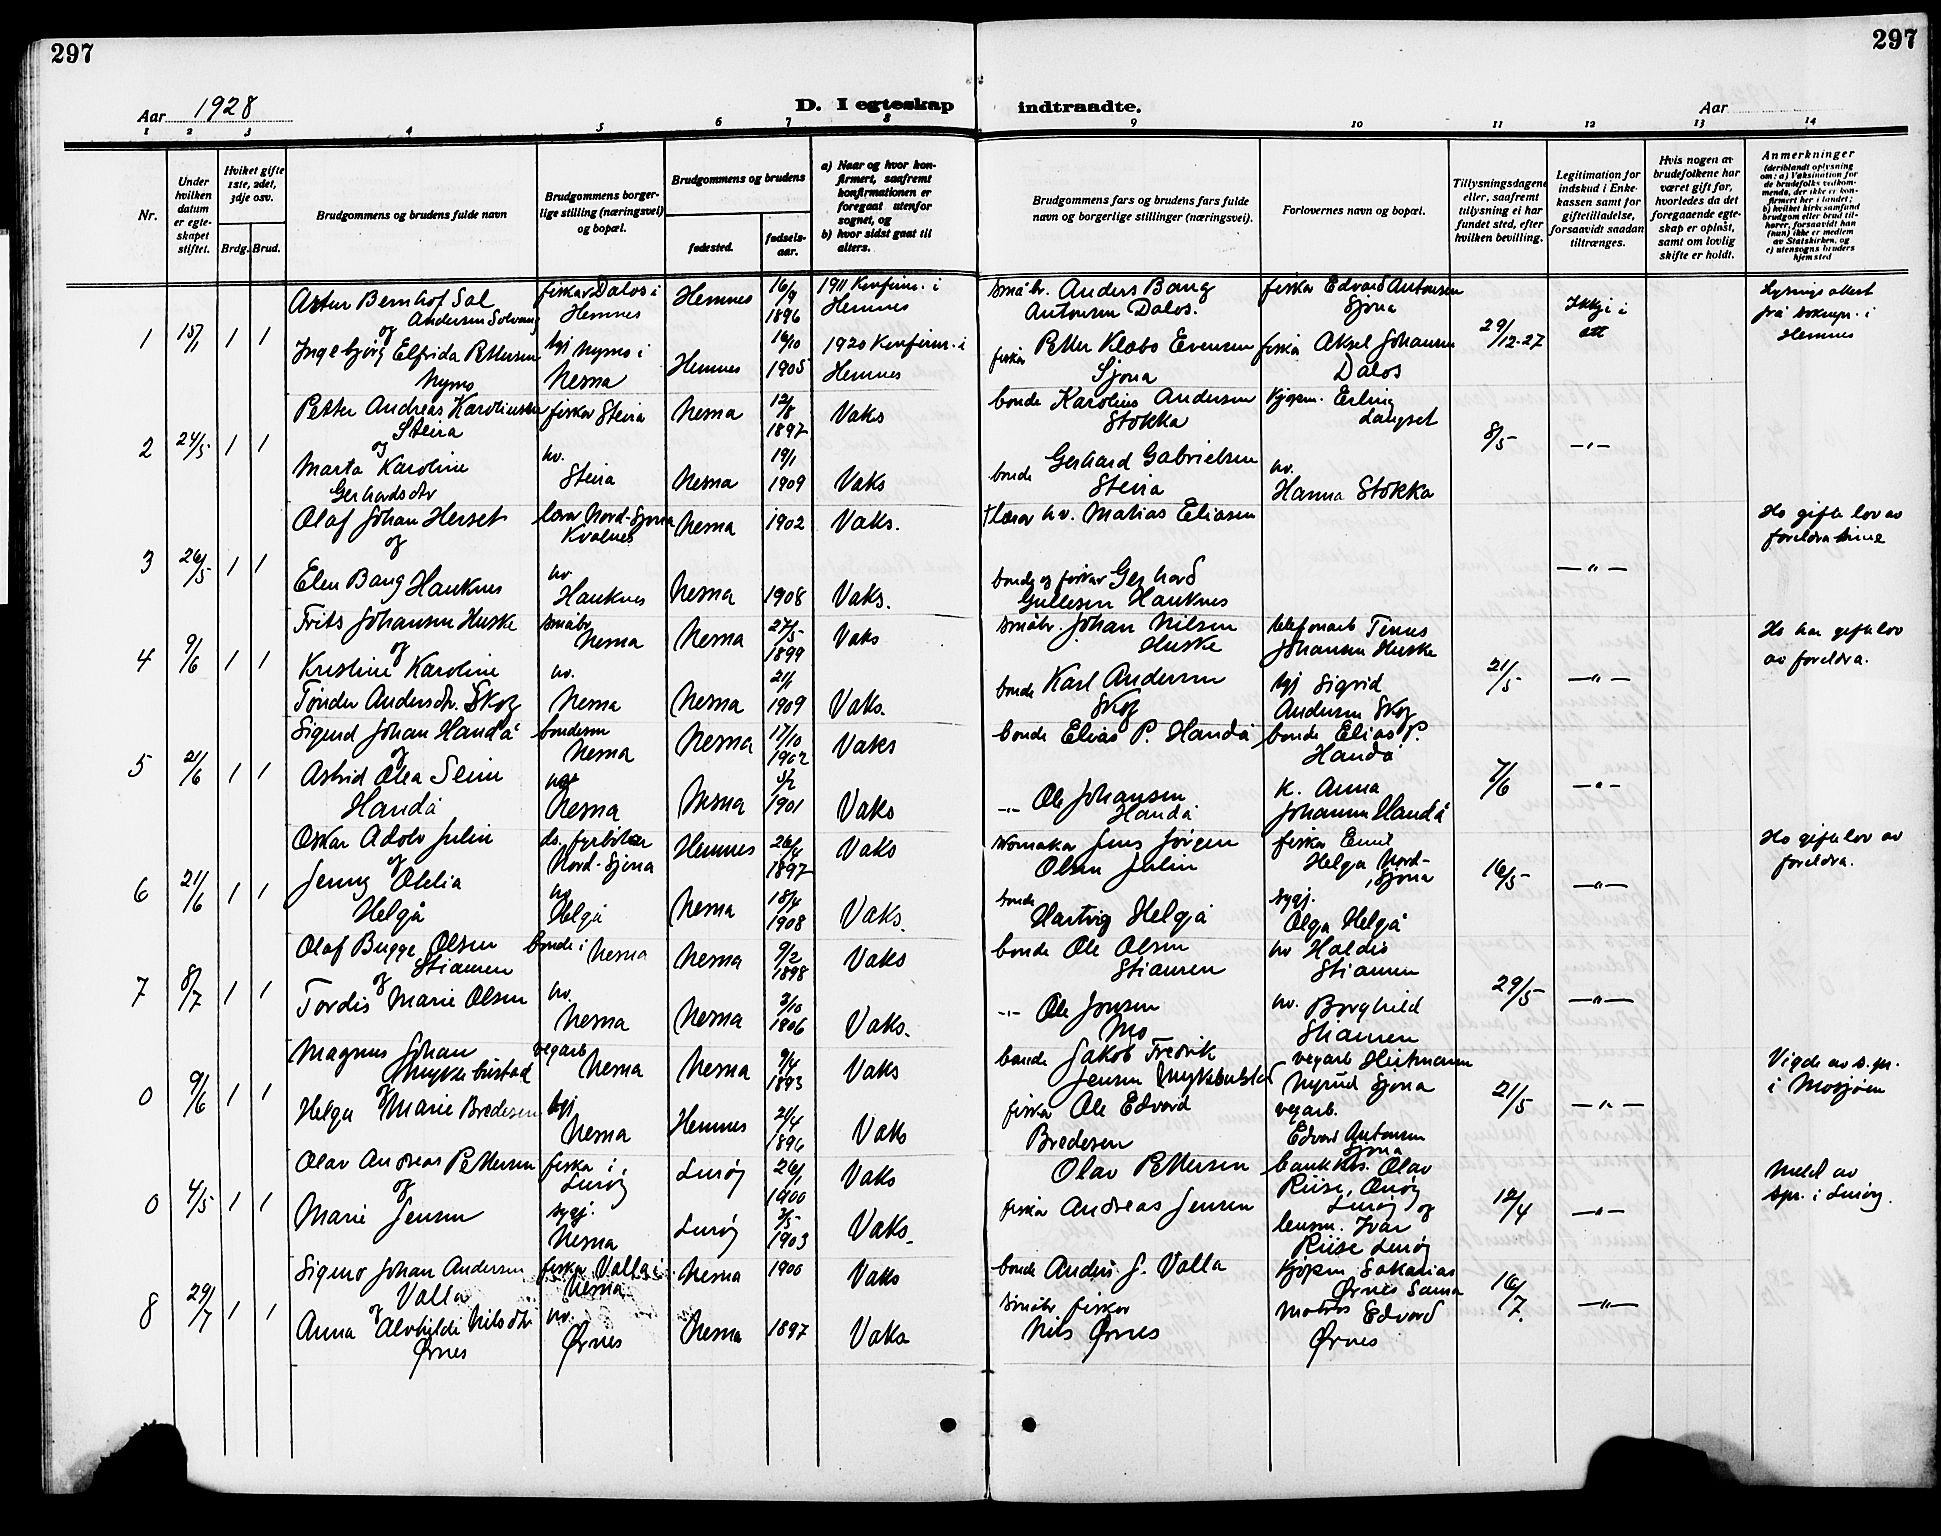 297
297
Aar 1928
D. I egteskap indtraadte.
Aar
1 2 3 4 5 6 7 8 9 10 11 12 13 14
Nr.
Under hvilken datum er egteskapet stiftet.
Hviket gifte 1ste, 2det, 3dje osv.
Brdg. Brud.
Brudgommens og brudens fulde navn
Brudgommens borgerlige stilling (næringsvei) og bopæl.
Brudgommens og brudens
fødested.
fødselsaar.
a) Naar og hvor konfirmert, saafremt konfirmationen er foregaat utenfor sognet, og
b) hvor sidst gaat til alters.
Brudgommens fars og brudens fars fulde navn og borgerlige stillinger (næringsvei).
Forlovernes navn og bopæl.
Tillysningsdagene eller, saafremt tillysning ei har fundet sted, efter hvilken bevilling.
Legitimation for indskud i Enkekassen samt for giftetilladelse, forsaavidt saadan tiltrænges.
Hvis nogen av brudefolkene har været gift før, hvorledes da det foregaaende egteskap er opløst, samt om lovlig skifte er holdt.
Anmerkninger
(deriblandt oplysning om: a) Vaksination for de brudefolks vedkommende, der ikke er konfirmert her i landet; b) hvilket kirkesamfund brudgom eller brud tilhører, forsaavidt han (hun) ikke er medlem av Statskirken, og c) utensogns bruders hjemsted
1 15/1 1 1
Artur Bernhof Sol Andersen Solvang
og
Ingebjørg Elfrida Pettersen Nymo
fiskar Dalos i Hemnes
Nymo i Nesna
Hemnes 16/9 1896
Hemnes 16/10 1905
1911 Konfirm. i Hemnes
1920 Konfirm. i Hemnes
småbr. Anders Bang Antonsen Dalos.
fiskar Petter Klabo Evensen Sjona
fiskar Edvard Antonsen Sjona
fiskar Aksel Johansen Dalos
29/12-27
Ikkji i ett
Lysings attest frå soknepr. i Hemnes
2 24/5 1 1
Petter Andreas Karolinsen Steira
og
Marta Karoline Gerhardsdtr
fiskar Steira
hv. Steira
Nesna 12/8 1897 Vaks
Nesna 19/1 1909 Vaks
bonde Karolius Andersen Stokka
bonde Gerhard Gabrielsen Steira
Kjøpm. Erling Langset
hv. Hanna Stokka
8/5
-"-
3 26/5 1 1
Olaf Johan Herset
og
Elen Bang Hauknes
lærar Nord-Sjona Kvalnes
hv. Hauknes
Nesna 1902 Vaks.
Nesna 1908 Vaks.
† lærar hv. Matias Eliasen
bonde og fiskar Gerhard Gullesen Hauknes
-"-
Ho gifte lov av foreldra sine
4 9/6 1 1
Frits Johansen Huske
og
Kristine Karoline Tønder Andersdtr. Skog
småbr Nesna
hv. Nesna
Nesna 27/5 1899 Vaks
Nesna 21/1 1909 Vaks.
småbr. Johan Nilsen Huske
bonde Karl Andersen Skog
telefonarb Tinus Johansen Huske
Sigrid Andersen Skog
21/5
-"-
Ho har giftelov av foreldra.
5 21/6 1 1
Sigurd Johan Handå
og
Astrid Olea Slein Handå
bondesøn Nesna
Nesna
Nesna 17/10 1902 Vaks
Nesna 5/2 1901 Vaks
bonde Elias P. Handå
-"- Ole Johansen Handå
bonde Elias P. Handå
k. Anna Johansen Handå
7/6
-"-
6 21/6 1 1
Oskar Adolv Julin
og
Jenny Otelia Helgå
ds. fyrbøtar Nord-Sjona
hv Helgå
Hemnes 26/4 1897 Vaks
Nesna 18/4 1908 Vaks.
skomakar Jens Jørgen Olsen Julin
bonde Hartvig Helgå
fiskar Emil Helgå Nord-Sjona
sygj. Olga Helgå
16/5
-"-
Ho giftelov av foreldra.
7 8/7 1 1
Olaf Bugge Olsen Stiansen
og
Tordis Marie Olsen
bonde i Nesna
hv. Nesna
Nesna 9/2 1898 Vaks
Nesna 3/10 1806 Vaks.
bonde Ole Olsen Stiansen
-"- Ole Jonsen Mo
hv Haldis Stiansen
hv. Borghild Stiansen
29/5
-"-
0 9/6 1 1
Magnus Johan Myklebustad
og
Helga Marie Bredesen
vegarb Nesna
Nesna
Nesna 9/4 1893 Vaks
Hemnes 21/4 1896 Vaks
bonde Jakob Fredrik Jensen Myklebustad
fiskar Ole Edvard Bredesen
vegarb Hirtmann Nyrud Sjona
vegarb. Edvard Antonsen Sjona
21/5
-"-
Vigde av s.pr. i Mosjøen
0 4/5 1 1
Olav Andreas Pettersen
og
Marie Jensen
fiskar i Lurøy
sygj. Nesna
Lurøy 26/1 1900 Vaks
Lurøy 3/5 1903 Vaks.
Olav Pettersen
fiskar Andreas Jensen
bankkas. Olav Riise, Onøy Lurøy og
lensm. Ivar Riise Lurøy
12/4
-"-
Meld av spr. i Lurøy.
8 29/7 1 1
Sigmo Johan Andersen Valla
og
Anna Alvhilde Nilsdtr Ørnes
fiskar Valla i Nesna
hv. Ørnes
Nesna 1900 Vaks
Nesna 1897 Vaks
bonde Anders J. Valla
småbr fiskar Nils Ørnes
Kjøpm Sakarias Ørnes Sauna
matros Edvard Ørnes
16/7.
-"-